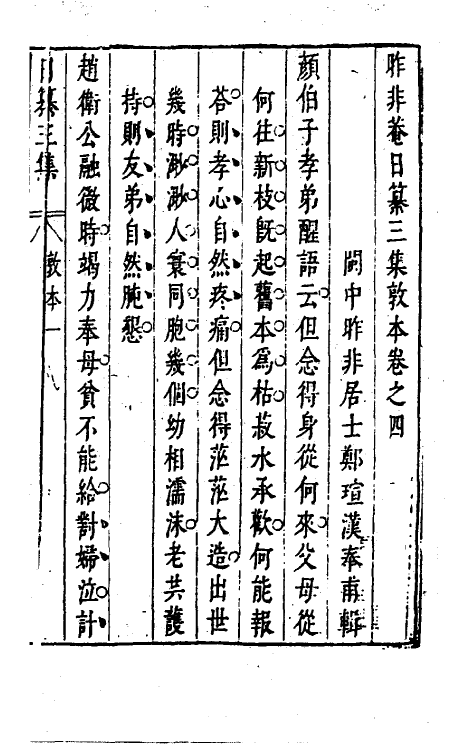 昨非菴日纂三集敦本卷之四
閩中昨非居士鄭瑄漢奉甫輯
顏伯子孝弟醒語云但念得身從何來父母從
何往新枝旣起舊本爲枯菽水承歡何能報
荅則孝心自然疼痛但念得茫茫大造出世
幾時渺渺人寰同胞幾個幼相濡沫老共護
持則友弟自然肫懇
趙衛公融微時竭力奉母貧不能給對婦泣計
日纂三集
敦本一
八